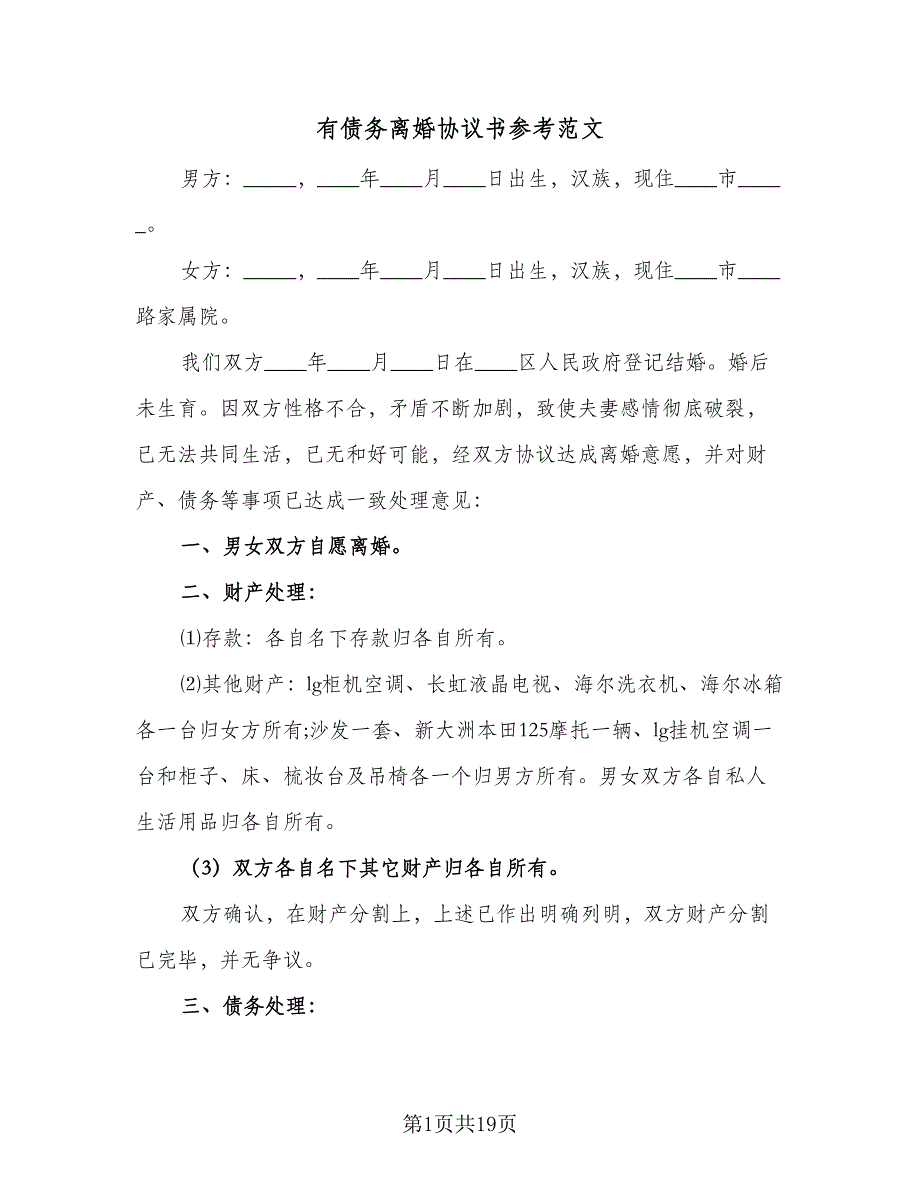 有债务离婚协议书参考范文
男方：_____，____年____月____日出生，汉族，现住____市____
_。
女方：_____，____年____月____日出生，汉族，现住____市____
路家属院。
我们双方____年____月____日在____区人民政府登记结婚。婚后
未生育。因双方性格不合，矛盾不断加剧，致使夫妻感情彻底破裂，
已无法共同生活，已无和好可能，经双方协议达成离婚意愿，并对财
产、债务等事项已达成一致处理意见：
一、男女双方自愿离婚。
二、财产处理：
⑴存款：各自名下存款归各自所有。
⑵其他财产：lg柜机空调、长虹液晶电视、海尔洗衣机、海尔冰箱
各一台归女方所有;沙发一套、新大洲本田125摩托一辆、lg挂机空调一
台和柜子、床、梳妆台及吊椅各一个归男方所有。男女双方各自私人
生活用品归各自所有。
（3）双方各自名下其它财产归各自所有。
双方确认，在财产分割上，上述已作出明确列明，双方财产分割
已完毕，并无争议。
三、债务处理：
第1页共19页